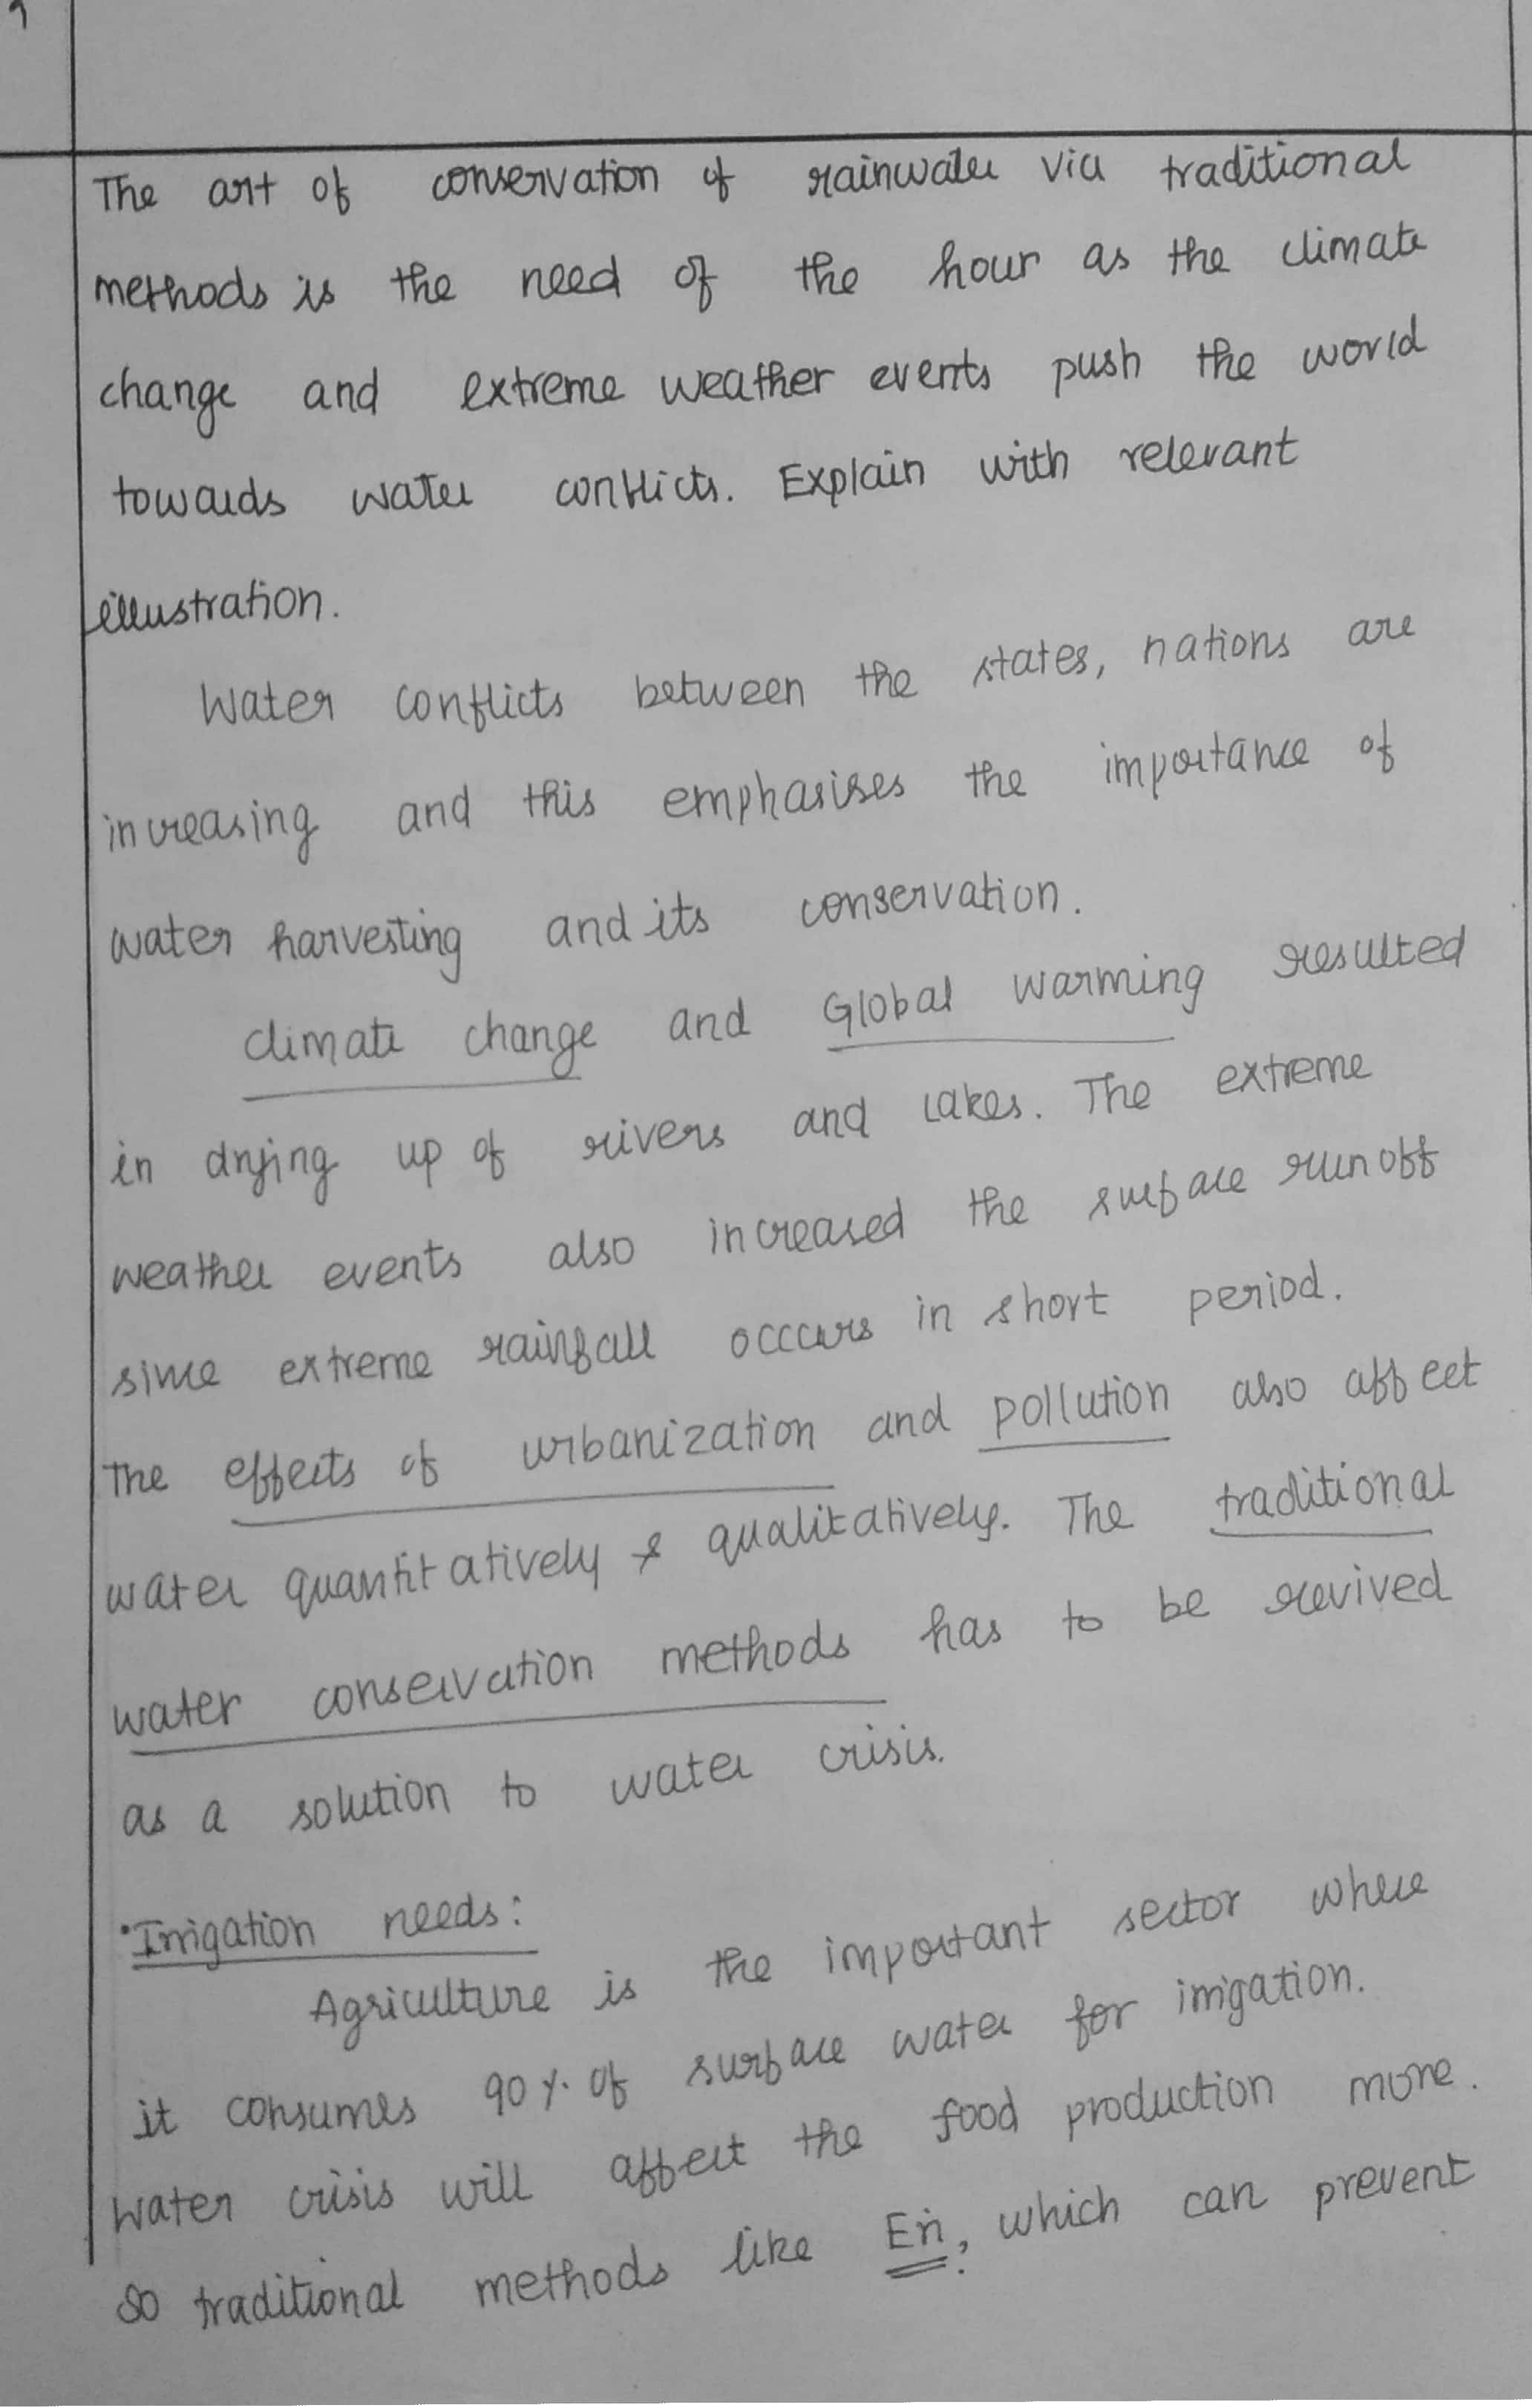 The art of conservation of rainwater via traditional
methods is the need of the hour as the climate
change and extreme weather events push the world
towards water conflicts. Explain with relevant
illustration.
Water conflicts between the states, nations are
increasing and this emphasises the importance of
water harvesting and its conservation.
Climate change and Global warming resulted
in drying up of rivers and lakes. The extreme
weather events also increased the surface runoff
since extreme rainfall occcurs in short period.
The effects of urbanization and pollution also affect
water quantitatively & qualitatively. The traditional
water conservation methods has to be revived
as a solution to water crisis.
• Irrigation needs:
Agriculture is the important sector where
it consumes 90%. of surface water for irrigation.
Water crisis will affect the food production more.
So traditional methods like Eri, which can prevent